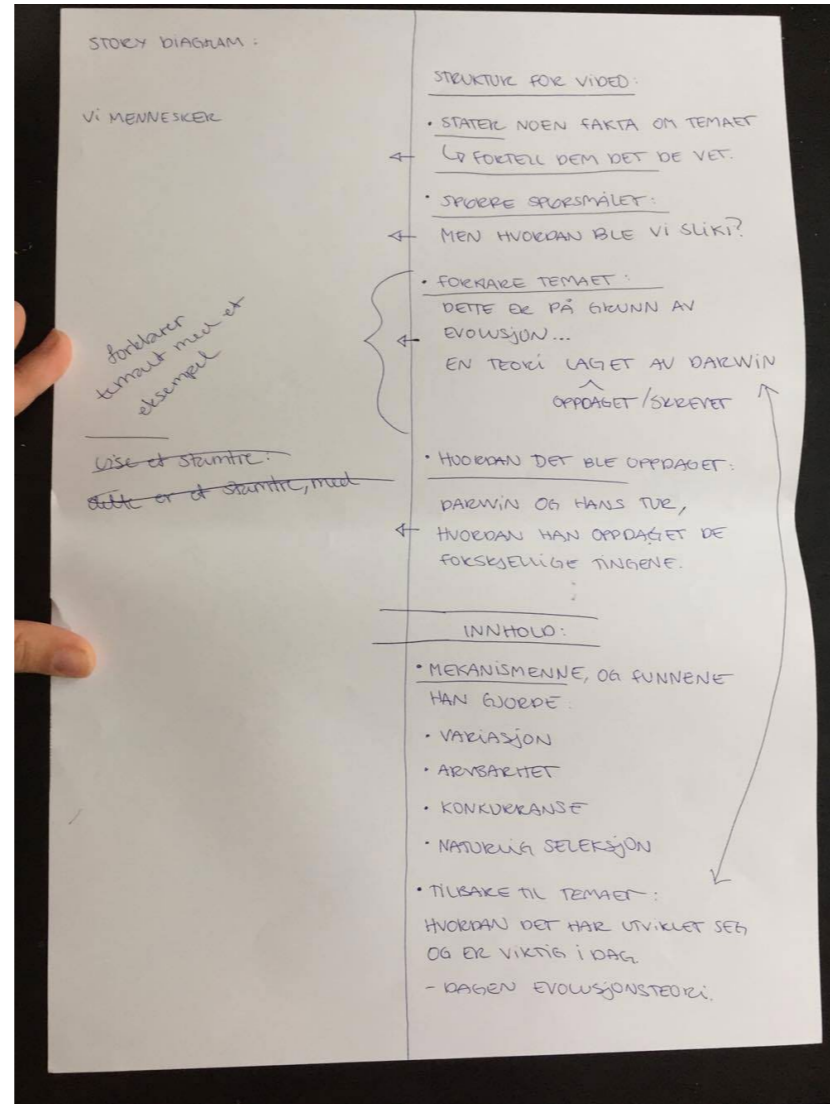 STORY DIAGRAM :
VI MENNESKER
forklarer
temaet med et
eksempel
vise et stamtre:
dette er et stamtre, med
STRUKTUR FOR VIDEO:
• STATER NOEN FAKTA OM TEMAET
↳ FORTELL DEM DET DE VET.
• SPØRRE SPØRSMÅLET:
MEN HVORDAN BLE VI SLIK?
• FORKARE TEMAET :
DETTE ER PÅ GRUNN AV
EVOLUSJON...
EN TEORI LAGET AV DARWIN
OPPDAGET/SKREVET
• HVORDAN DET BLE OPPDAGET:
DARWIN OG HANS TUR,
HVORDAN HAN OPPDAGET DE
FORSKSJELLIGE TINGENE.
INNHOLD:
• MEKANISMENNE, OG FUNNENE
HAN GJORDE.
• VARIASJON
• ARVBARHET
• KONKURRANSE
• NATURLIG SELEKSJON
• TILBAKE TIL TEMAET:
HVORDAN DET HAR UTVIKLET SEG
OG ER VIKTIG I DAG
- DAGEN EVOLUSJONSTEORI.